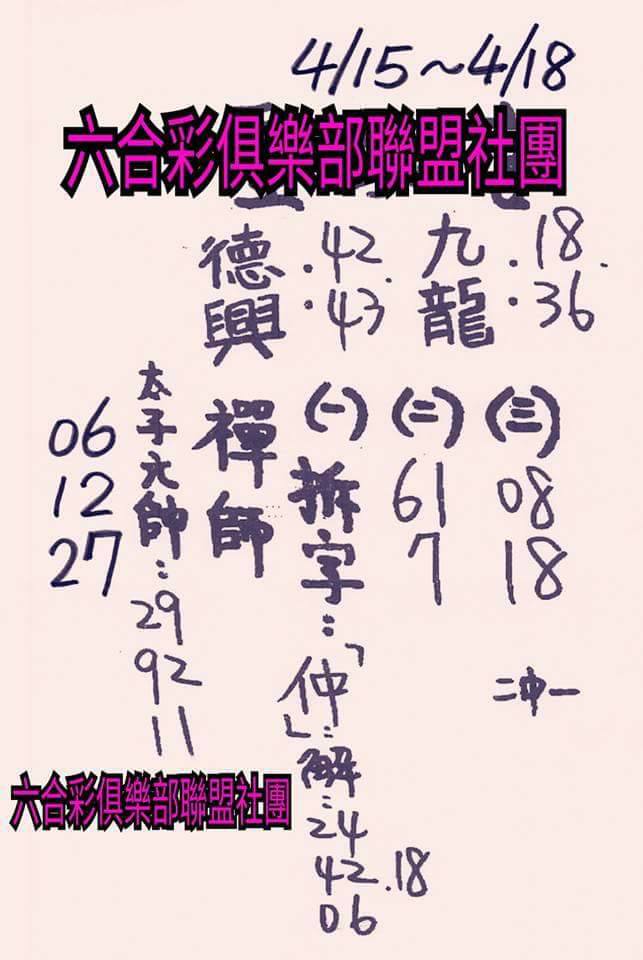 4/15~4/18
六合彩俱樂部聯盟社團
德興 .42 .43.
九龍 .18. .36.
(一) 拆字:「仲」:解: 24 42.18 06
(二) 61 7
(三) 08 18
二中一
禪師
太子元帥: 29 92 11
06
12
27
六合彩俱樂部聯盟社團